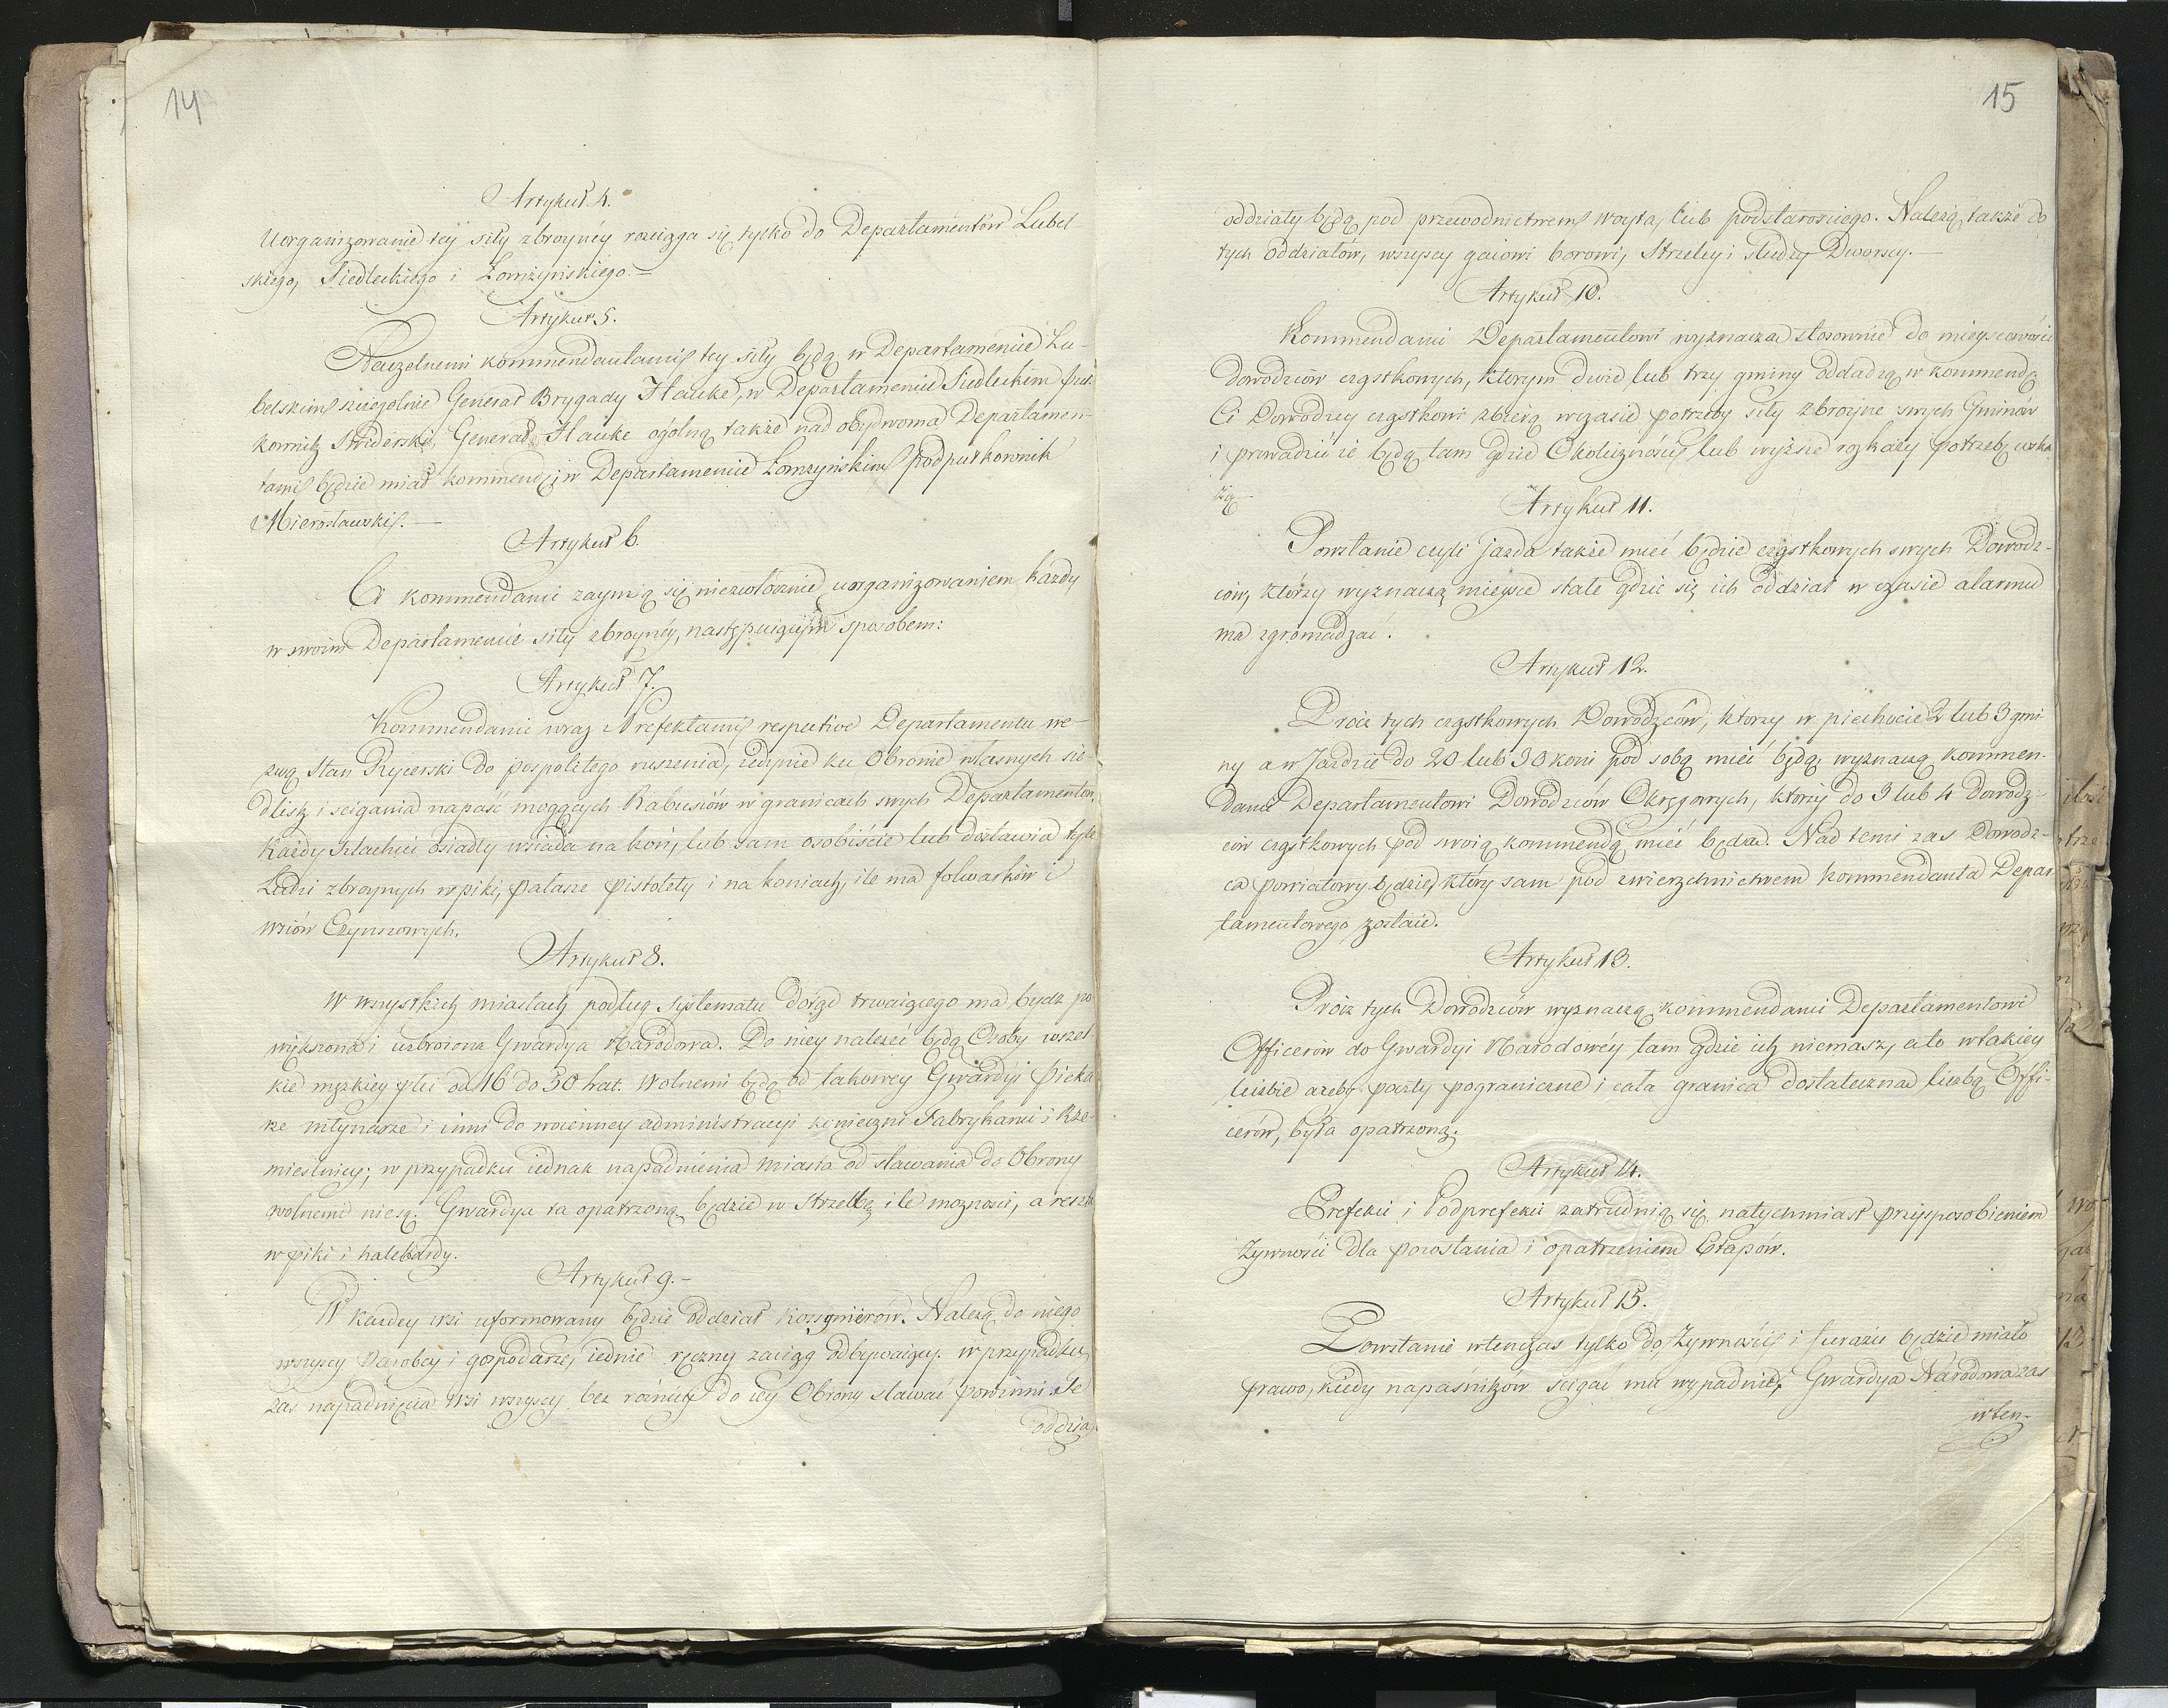 14
Artykuł 4.
Uorganizowanie tey siły zbroyney rozciąga się tylko do Departamentów Lubel-
skiego, Siedleckiego i Łomżyńskiego. —
Artykuł 5.
Naczelnemi kommendantami tey siły będą w Departamencie Lu-
belskim szczególnie Generał Brygady Hauke, w Departamencie Siedleckim Puł
kownik Swiderski, Generał Hauke ogólną także nad obydwoma Departamen-
tami będzie miał kommendę; w Departamencie Łomżyńskim Podpułkownik
Mierosławski. —
Artykuł 6.
Ci kommendanci zaymą się niezwłocznie uorganizowaniem każdy
w swoim Departamencie siły zbroyney, następuiącym sposobem:
Artykuł 7.
Kommendanci wraz z Prefektami respective Departamentu we-
zwą Stan Rycerski do pospolitego ruszenia, iedynie ku Obronie własnych sie-
dlisk i scigania napaść mogących Rabusiów w granicach swych Departamentow,
Każdy szlachcic osiadły wsiada na koń, lub sam osobiście lub dostawia tyle
Ludzi zbroynych w piki, pałasze pistolety i na koniach, ile ma folwarków i
wsiów Czynszowych.
Artykuł 8.
W wszystkich miastach podług systematu dotąd trwaiącego ma bydz po
większona i uzbroiona Gwardya Narodowa. Do niey należeć będą Osoby wszel
kie męzkiey płci od 16 do 50 lat. Wolnemi będą od takowey Gwardyi Pieka
rze młynarze i inni do woienney administracyi konieczni Fabrykanci i Rze-
mieślnicy; w przypadku iednak napadnienia miasta od stawania do Obrony
wolnemi niesą. Gwardya ta opatrzoną będzie w strzelbę ile możności, a reszta
w piki i halebardy.
Artykuł 9. —
W każdey wsi uformowany będzie oddział kossynierów. Należą do niego
wszyscy Parobcy i gospodarze, iednie ręczny zaciąg odbywaiący. w przypadku
zas napadnięcia wsi wszyscy bez różnicy do iey Obrony stawać powinni. Te
oddzia-
15
oddziały będą pod przewodnictwem woyta, lub podstarosciego. Należą także do
tych oddziałów, wszyscy gaiowi borowi, Strzelcy i słudzy Dworscy. —
Artykuł 10.
Kommendanci Departamentowi wyznaczać stosownie do mieyscowości
Dowodzców cząstkowych, ktorym dwie lub trzy gminy oddadzą w kommendę
Ci Dowodzcy cząstkowi zbiorą wczasie potrzeby siły zbroyne swych Gminów
i prowadzić ie będą tam gdzie Okoliczności lub wyższe rozkazy potrzebę wska-
żą.
Artykuł 11.
Powstanie czyli jazda także mieć będzie cząstkowych swych Dowodz-
ców, którzy wyznaczą mieysce stałe gdzie się ich oddział w czasie alarmu
ma zgromadzać.
Artykuł 12.
Prócz tych cząstkowych Dowodzców, ktorzy w piechocie 2 lub 3 gmi-
ny a w Jazdzie do 20 lub 30 koni pod sobą mieć będą, wyznaczą kommen-
danci Departamentowi Dowodzców Okręgowych, ktorzy do 3 lub 4 dowodz-
ców cząstkowych pod swoią kommendą mieć będą. Nad temi zas Dowodz-
ca powiatowy będzie, który sam pod zwierzchnictwem kommendanta Depar
tamentowego zostaie.
Artykuł 13.
Prócz tych Dowodzców wyznaczą kommendanci Departamentowi
Officerów do Gwardyi Narodowéy tam gdzie ich niemasz, a to w takiey
liczbie ażeby poczty pograniczne i cała granica dostateczna liczbą Offi-
cerów, była opatrzoną.
Artykuł 14.
Prefekci i Podprefekci zatrudnią się natychmiast przysposobieniem
Żywności dla powstania i opatrzeniem Etapów.
Artykuł 15.
Powstanie wtenczas tylko do Żywności i furażu będzie miało
prawo, kiedy napaśników scigać mu wypadnie, Gwardya Narodowa zas
wten-